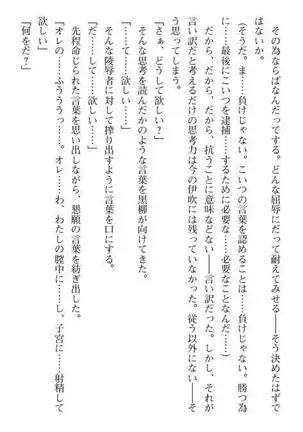 その為ならばなんだってする。どんな屈辱にだって耐えてみせる――そう決めたはずで
はないか。
（そうだ。ま……負けじゃない。こいつの言葉を認めることは……負けじゃない。勝つ為
に……最後にこいつを逮捕……するために必要な……必要なことなんだ……）
だから、だから、だから、抗うことに意味などない――言い訳だった。しかし、それが
言い訳だと考えるだけの思考力は今の伊吹には残っていなかった。従う以外にない――そ
う思ってしまう。
「さぁ、どうして欲しい？」
そんな思考を読んだかのような言葉を黒柳が向けてきた。
「……して……欲しい……」
そんな陵辱者に対して搾り出すように言葉を口にする。
「だ……だして……欲しい……」
先程命じられた言葉を思い出しながら、懇願の言葉を紡ぎ出した。
「オレの……ふうううっ……。オレ……わ、わたしの膣中に……し、子宮に……射精して
欲しい」
「何をだ？」